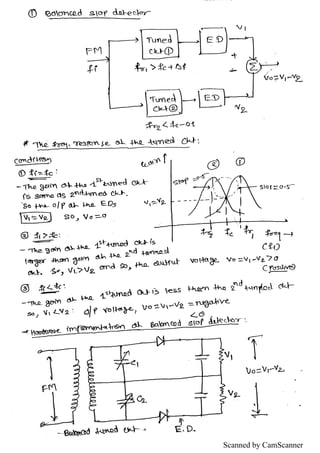 ① Balanced slop detector
V1
Tuned
ckt①
ED
FM
fi
fr1 > fc + Δf
+
Σ
Vo=V1-V2
-
Tuned
ckt②
ED
V2
fr2 < fc - Δf
* The freq. response of the tuned ckt:
Condition
① fi=fc:
- The gain of the 1st tuned ckt
is same as 2nd tuned ckt.
So the o/p of the EDs
V1=V2 so, Vo=0
Gain↑
②
①
slop=-0.5
slop=0.5
V1=V2
fr2 fc fr1 freq →
(fi)
② fi>fc:
- The gain of the 1st tuned ckt is
larger than gain of the 2nd tunned
ckt. So, V1>V2 and so, the output voltage Vo=V1-V2>0
(positive)
③ fi<fc:
- The gain of the 1st tuned ckt is less then the 2nd tunned ckt
so, V1<V2: o/p voltage, Vo=V1-V2 = negative
<0
→ Hardware implementation of Balanced slop detector:
C1
V1
FM
Vo=V1-V2
C2
V2
- Balanced tuned ckt.
E.D.
Scanned by CamScanner